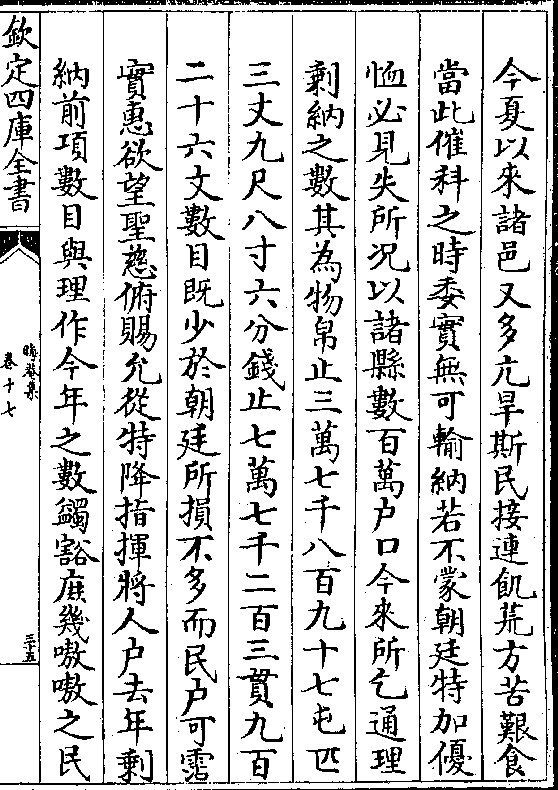 今夏以來諸邑又多亢旱斯民接連飢荒方苦艱食
當此催科之時委實無可輸納若不蒙朝廷特加優
恤必見失所况以諸縣數百萬户口今來所乞通理
剰納之數其為物帛止三萬七千八百九十七屯匹
三丈九尺八寸六分錢止七萬七千二百三貫九百
二十六文數目既少於朝廷所損不多而民户可霑
實惠欲望聖慈俯賜允從特降指揮將人户去年剰
納前項數目與理作今年之數蠲豁庶幾嗷嗷之民
欽定四庫全書
晦菴集
卷十七
三十五